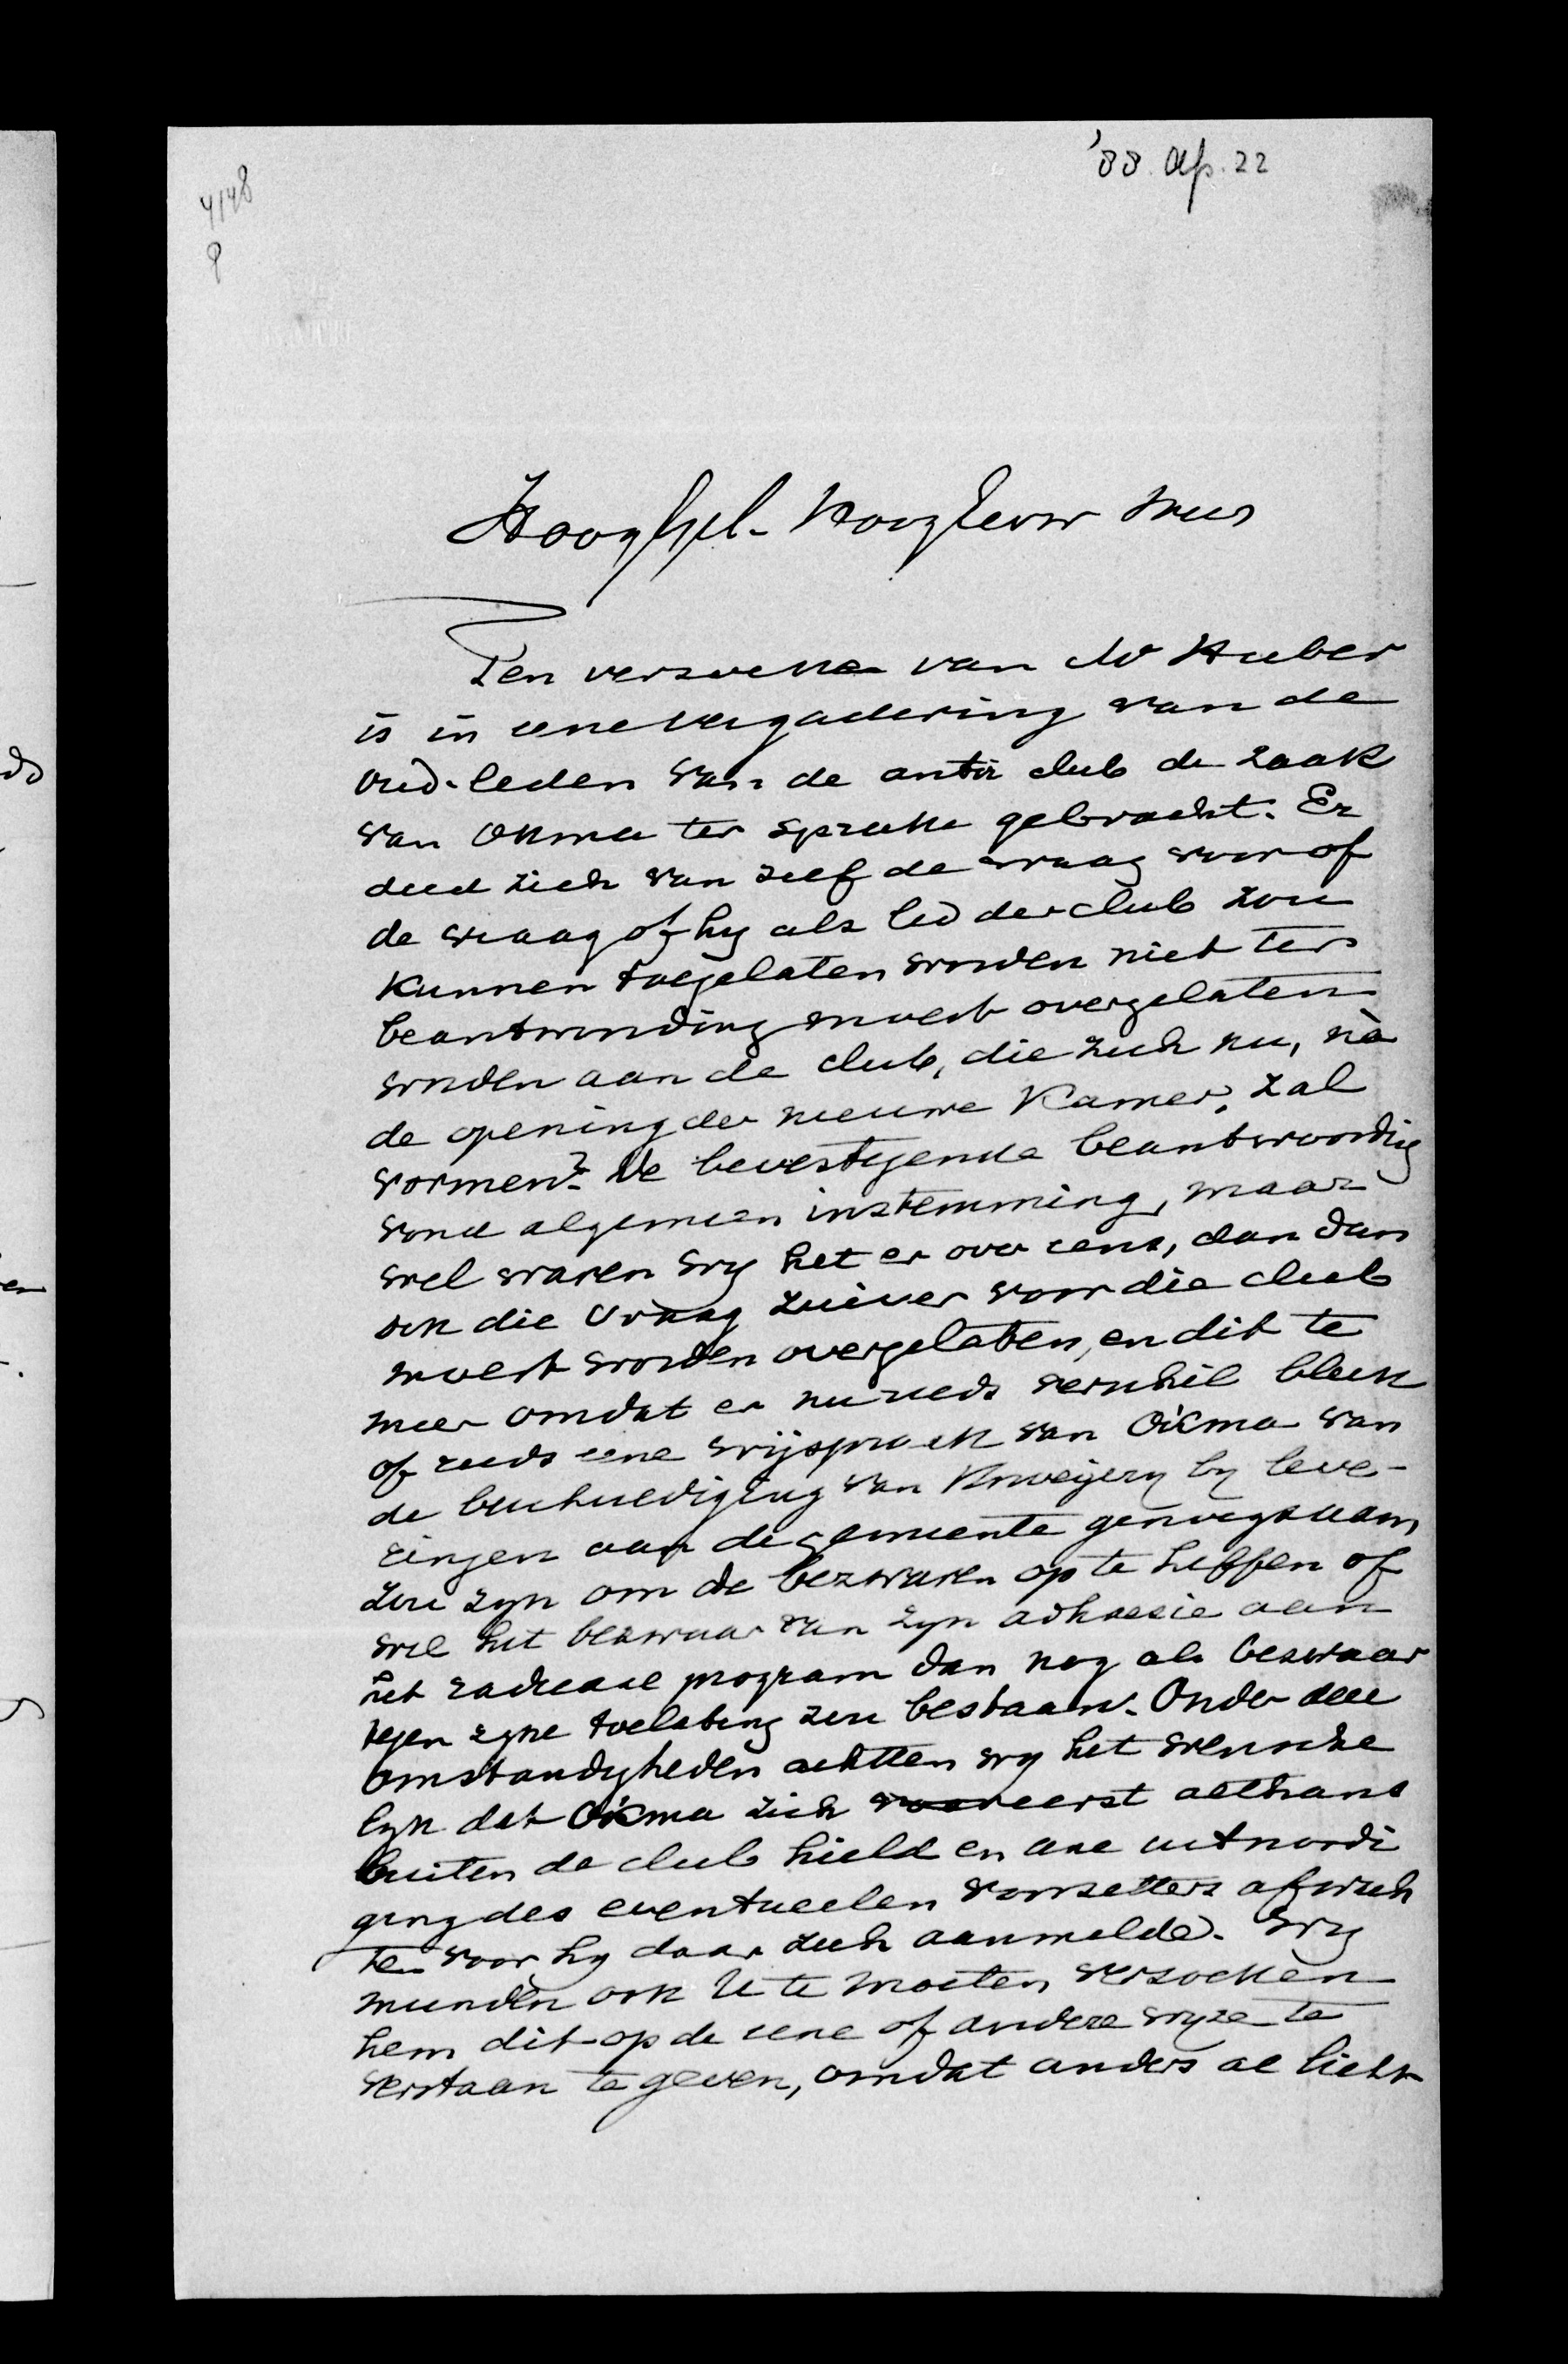 '88. Ap. 22
4148
9
HoogGel. HoogEerw Heer
Ten verzoeke van Mr Huber
is in eene vergadering van de
oud-leden van de antir club de zaak
van Okma ter sprake gebracht. Er
deed zich van zelf de vraag voor of
de vraag of hy als lid der club zou
kunnen toegelaten worden niet ter
beantwoording moest overgelaten
worden aan de club, die zich nu, na
de opening der nieuwe Kamer, zal
vormen? De bevestigende beantwoording
vond algemeen instemming, maar
wel waren wy het er over eens, dan dan
ook die vraag zuiver voor die club
moest worden overgelaten, en dit te
meer omdat er nu reeds verschil bleek
of reeds eene vrijspraak van Okma van
de beschuldiging van knoeijery by leve-
ringen aan de gemeente genoegzaam
zou zyn om de bezwaren op te heffen of
wel het bezwaar van zyn adhaesie aan
het radicale program dan nog als bezwaar
tegen zyne toelating zou bestaan. Onder deze
omstandigheden achtten wy het wensche
lyk dat Okma zich vooreerst althans
buiten de club hield en eene uitnoodi
ging des eventueelen voorzitters afwach
te voor hy daar zich aanmelde. Wy
meenden ook U te moeten verzoeken
hem dit op de eene of andere wyze te
verstaan te geven, omdat anders al licht